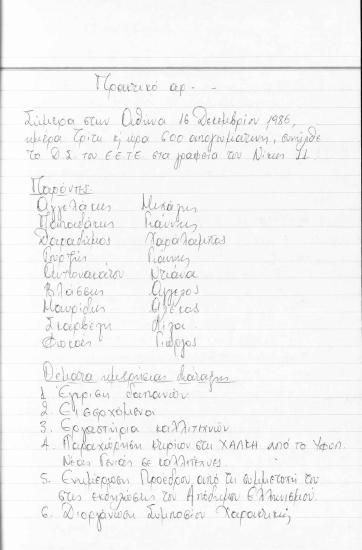 Πρακτικό αρ. -
Σήμερα στην Αθήνα 16 Δεκεμβρίου 1986,
ημέρα Τρίτη κ ώρα 6.00 απογευματινή, συνήλθε
το Δ.Σ. του Ε.Ε.Τ.Ε. στα γραφεία του Νίκης 11.
Παρόντες
Αγγελάκης Μιχάλης
Παπαδάκης Γιάννης
Χαραλάμπος
Γιάννης
Αντωνακάτου Ντιάνα
Βλάσσης Άγγελος
Μαυρίδης
Φώτης Γιώργος
Θέματα ημερησίας διάταξης
1. Έγκριση δαπανών
2. Εισερχόμενα
3. Εργαστήρια καλλιτεχνών
4. Παραχώρηση κτιρίου στη ΧΑΛΚΗ από το Υφυπ.
Νέας Γενιάς σε καλλιτέχνες.
5. Ενημέρωση Προέδρου από τη συμμετοχή του
στις εκδηλώσεις του Απόδημου Ελληνισμού.
6. Διοργάνωση Συμποσίου Χαρακτικής